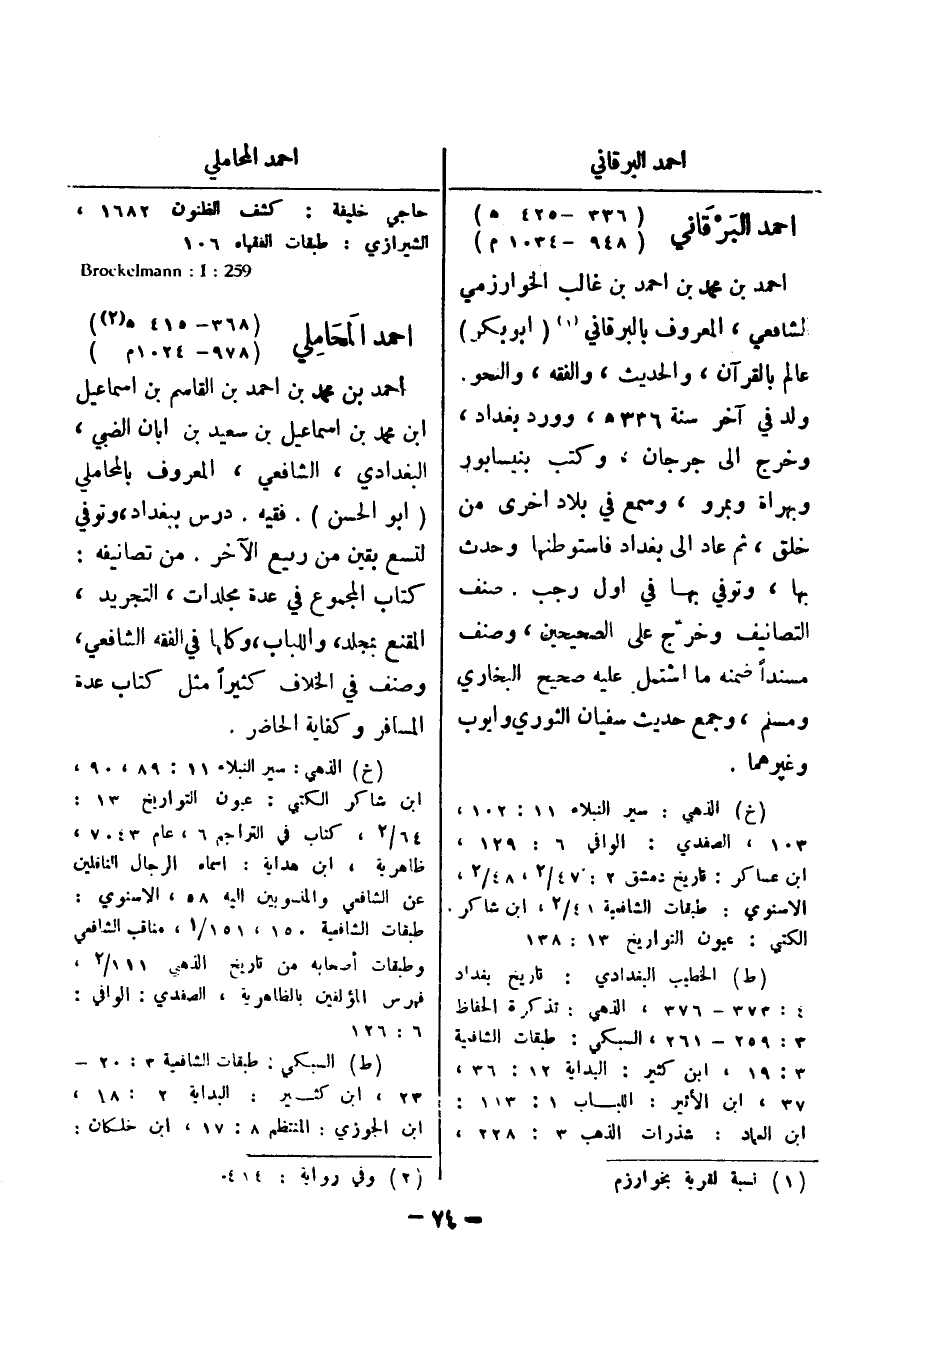 احمد البرقاني
احمد البَرْقَاني
( ٣٣٦ – ٤٢٥ ه )
( ٩٤٨ – ١٠٣٤ م )
احمد بن محمد بن احمد بن غالب الخوارزمي
لشافعي ، المعروف بالبرقاني (١) ( ابو بكر )
عالم بالقرآن ، والحديث ، والفقه ، والنحو .
ولد في آخر سنة ٣٣٦ ه ، وورد بغداد ،
وخرج الى جرجان ، وكتب بنيسابور
وبهراة وبمرو ، وسمع في بلاد اخرى من
خلق ، ثم عاد الى بغداد فاستوطنها وحدث
بها ، وتوفي بهـا في اول رجب . صنف
التصانيف وخرّج على الصحيحين ، وصنف
مسنداً ضمنه ما اشتمل عليه صحيح البخاري
ومسلم ، وجمع حديث سفيان الثوري وايوب
وغيرهما .
(خ) الذهبي : سير النبلاء ١١ : ١٠٢ ،
١٠٣ ، الصفدي : الوافي ٦ : ١٢٩ ،
ابن عساكر : تاريخ دمشق ٢ : ٢/٤٧ ، ٢/٤٨ ،
الاسنوي : طبقات الشافعية ٢/٤١ ، ابن شاكر
الكتبي : عيون التواريخ ١٣ : ١٣٨
(ط) الخطيب البغدادي : تاريخ بغداد
٤ : ٣٧٣ – ٣٧٦ ، الذهبي : تذكرة الحفاظ
٣ : ٢٥٩ – ٢٦١ ، السبكي : طبقات الشافعية
٣ : ١٩ ، ابن كثير : البداية ١٢ : ٣٦ ،
٣٧ ، ابن الأثير : اللبـاب ١ : ١١٣ :
ابن العماد : شذرات الذهب ٣ : ٢٢٨ ،
(١) نسبة لقرية بخوارزم
احمد المحاملي
حاجي خليفة : كشف الظنون ١٦٨٢ ،
الشيرازي : طبقات الفقهاء ١٠٦
Brockelmann : I : 259
احمد المَحَامِلي
(٣٦٨ – ٤١٥ ه(٢))
(٩٧٨ – ١٠٢٤م )
أحمد بن محمد بن احمد بن القاسم بن اسماعيل
ابن محمد بن اسماعيل بن سعيد بن ابان الضبي ،
البغدادي ، الشافعي ، المعروف بالمحاملي
( ابو الحسن ) . فقيه . درس ببغداد، وتوفي
لتسع بقين من ربيع الآخر . من تصانيفه :
كتاب المجموع في عدة مجلدات ، التجريد ،
المقنع بمجلد، واللباب، وكلها في الفقه الشافعي،
وصنف في الخلاف كثيراً مثل كتاب عدة
المسافر وكفاية الحاضر .
(خ) الذهبي : سير النبلاء ١١ : ٨٩ ، ٩٠ ،
ابن شاكر الكتبي : عيون التواريخ ١٣ :
٢/٦٤ ، كتاب في التراجم ٦ ، عام ٧٠٤٣ ،
ظاهرية ، ابن هداية : اسماء الرجال الناقلين
عن الشافعي والمنسوبين اليه ٥٨ ، الاسنوي :
طبقات الشافعية ١٥٠ ، ١/١٥١ ، مناقب الشافعي
وطبقات أصحابه من تاريخ الذهبي ٢/١١١ ،
فهرس المؤلفين بالظاهرية ، الصفدي : الوافي :
٦ : ١٢٦
(ط) السبكي : طبقات الشافعية ٣ : ٢٠ –
٢٣ ، ابن كثـــير : البداية ٢ : ١٨ ،
ابن الجوزي : المنتظم ٨ : ١٧ ، ابن خلكان :
(٢) وفي رواية : ٤١٤.
– ٧٤ –